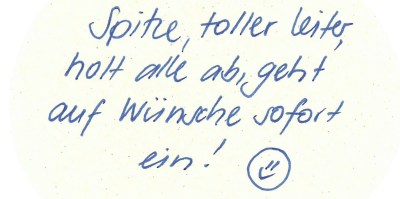 Spitze, toller Leiter,
holt alle ab, geht
auf Wünsche sofort
ein! ☺